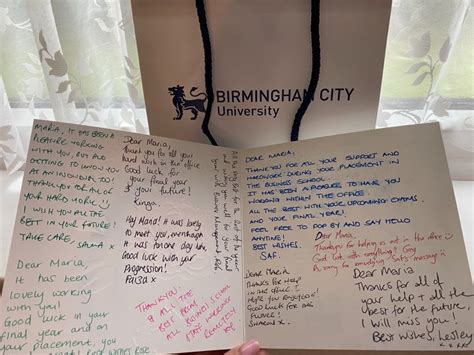 BIRMINGHAM CITY
University
MARIA, IT HAS BEEN A
PLEASURE WORKING
WITH YOU, BUT ALSO
GETTING TO KNOW YOU
AS AN INDIVIDUAL!
THANK YOU FOR ALL OF
YOUR HARD WORK
I WISH YOU ALL THE
BEST IN YOUR FUTURE!
TAKE CARE,
Dear Maria,
It has been
lovely working
with you!
Good luck in your
final year and on
your placement, you
Dear Maria,
thank you for all your
hard work in the office
Good luck for
your final year
& your future!
Kinga
Hey Maria! It was lovely
to meet you, even though
it was for one day
Good luck with your
Progression!
THANKYOU
& ALL THE
BEST FROM
ALL
DEAR MARIA,
THANK YOU FOR ALL YOUR SUPPORT AND
HARDWORK DURING YOUR PLACEMENT IN
THE BUSINESS SCHOOL.
IT HAS BEEN A PLEASURE TO HAVE YOU
WORKING WITHIN THE OFFICE.
ALL THE BEST WITH YOUR UPCOMING EXAMS
AND YOUR FINAL YEAR!
FEEL FREE TO POP BY AND SAY HELLO
ANYTIME!
BEST WISHES,
SAF.
Dear Maria,
Thankyou for helping us out in the office
Good luck with everything
Dear Maria
Thanks for help
in the office! I
Hope you enjoyed!
Good luck for the
future!
Sharon x
Dear Maria
Thanks for all of
your help & all the
best for the future.
I will miss you!
Best wishes, Lesley